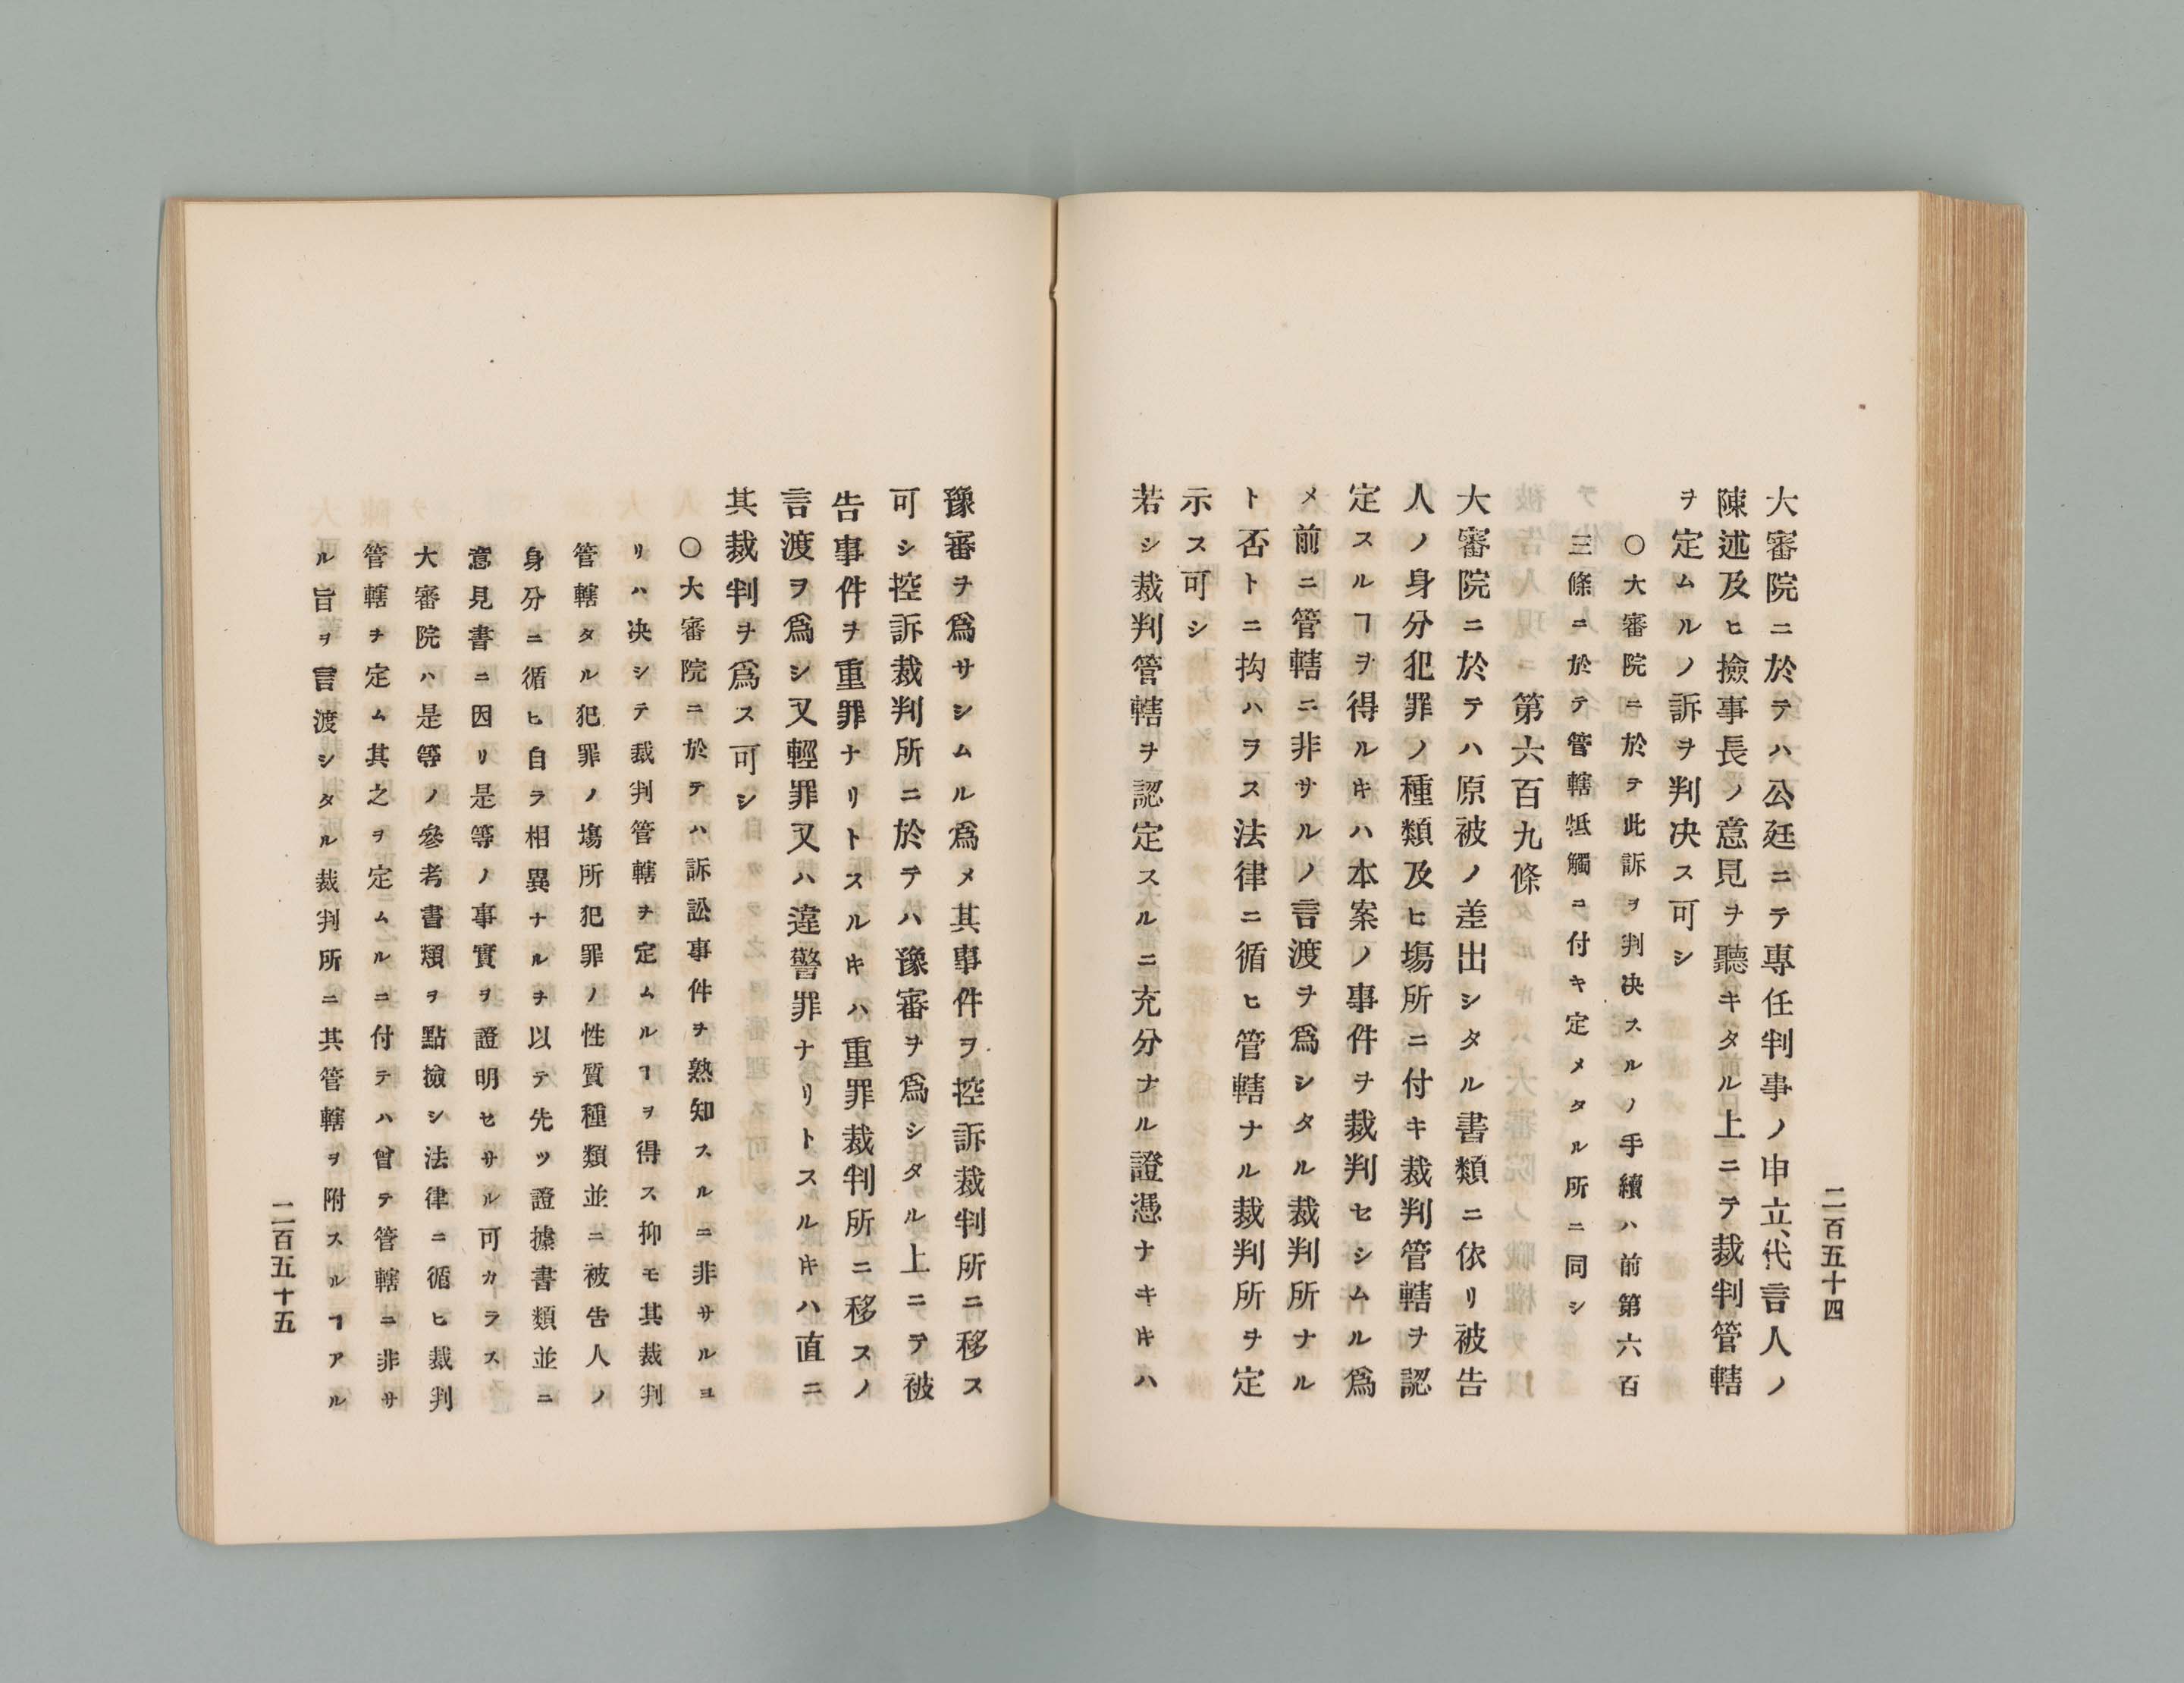 二百五十四
大審院ニ於テハ公廷ニテ專任判事ノ申立、代言人ノ
陳述及ヒ撿事長ノ意見ヲ聽キタル上ニテ裁判管轄
ヲ定ムルノ訴ヲ判决ス可シ
〇大審院ニ於テ此訴ヲ判决スルノ手續ハ前第六百
三條ニ於テ管轄牴觸ニ付キ定メタル所ニ同シ
第六百九條
大審院ニ於テハ原被ノ差出シタル書類ニ依リ被告
人ノ身分犯罪ノ種類及ヒ塲所ニ付キ裁判管轄ヲ認
定スルヿヲ得ルキハ本案ノ事件ヲ裁判セシムル爲
メ前ニ管轄ニ非サルノ言渡ヲ爲シタル裁判所ナル
ト否トニ拘ハヲス法律ニ循ヒ管轄ナル裁判所ヲ定
示ス可シ
若シ裁判管轄ヲ認定スルニ充分ナル證憑ナキキハ
豫審ヲ爲サシムル爲メ其事件ヲ控訴裁判所ニ移ス
可シ控訴裁判所ニ於テハ豫審ヲ爲シタル上ニテ被
告事件ヲ重罪ナリトスルキハ重罪裁判所ニ移スノ
言渡ヲ爲シ又輕罪又ハ違警罪ナリトスルキハ直ニ
其裁判ヲ爲ス可シ
〇大審院ニ於テハ訴訟事件ヲ熟知スルニ非サルヨ
リハ决シテ裁判管轄ヲ定ムルヿヲ得ス抑モ其裁判
管轄タル犯罪ノ塲所犯罪ノ性質種類並ニ被告人ノ
身分ニ循ヒ自ラ相異ナルヲ以テ先ツ證據書類並ニ
意見書ニ因リ是等ノ事實ヲ證明セサル可カラス
大審院ハ是等ノ參考書類ヲ點撿シ法律ニ循ヒ裁判
管轄ヲ定ム其之ヲ定ムルニ付テハ曾テ管轄ニ非サ
ル旨ヲ言渡シタル裁判所ニ其管轄ヲ附スルヿアル
二百五十五